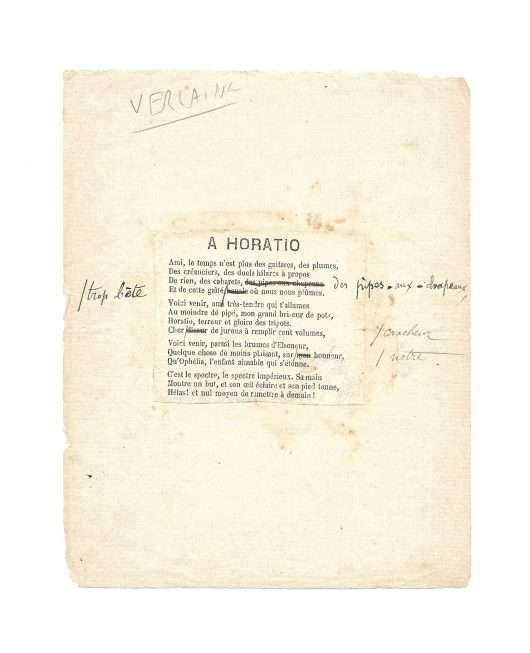 VERLAINE
A HORATIO
Ami, le temps n'est plus des guitares, des plumes,
Des créanciers, des duels hilares à propos
De rien, des cabarets, des pipes aux chapeaux des pipes-aux-drapeaux,
/trop bête Et de cette gaîté où nous nous plûmes.
Voici venir, ami très-tendre qui t'allumes
Au moindre dé pipé, mon grand briseur de pots,
Horatio, terreur et gloire des tripots,
Cher diseur de jurons à remplir cent volumes, /cracheur
Voici venir, parmi les brumes d'Elseneur,
Quelque chose de moins plaisant, sur mon honneur, / notre.
Qu'Ophélia, l'enfant aimable qui s'étonne.
C'est le spectre, le spectre impérieux. Sa main
Montre un but, et son œil éclaire et son pied tonne,
Hélas! et nul moyen de remettre à demain!